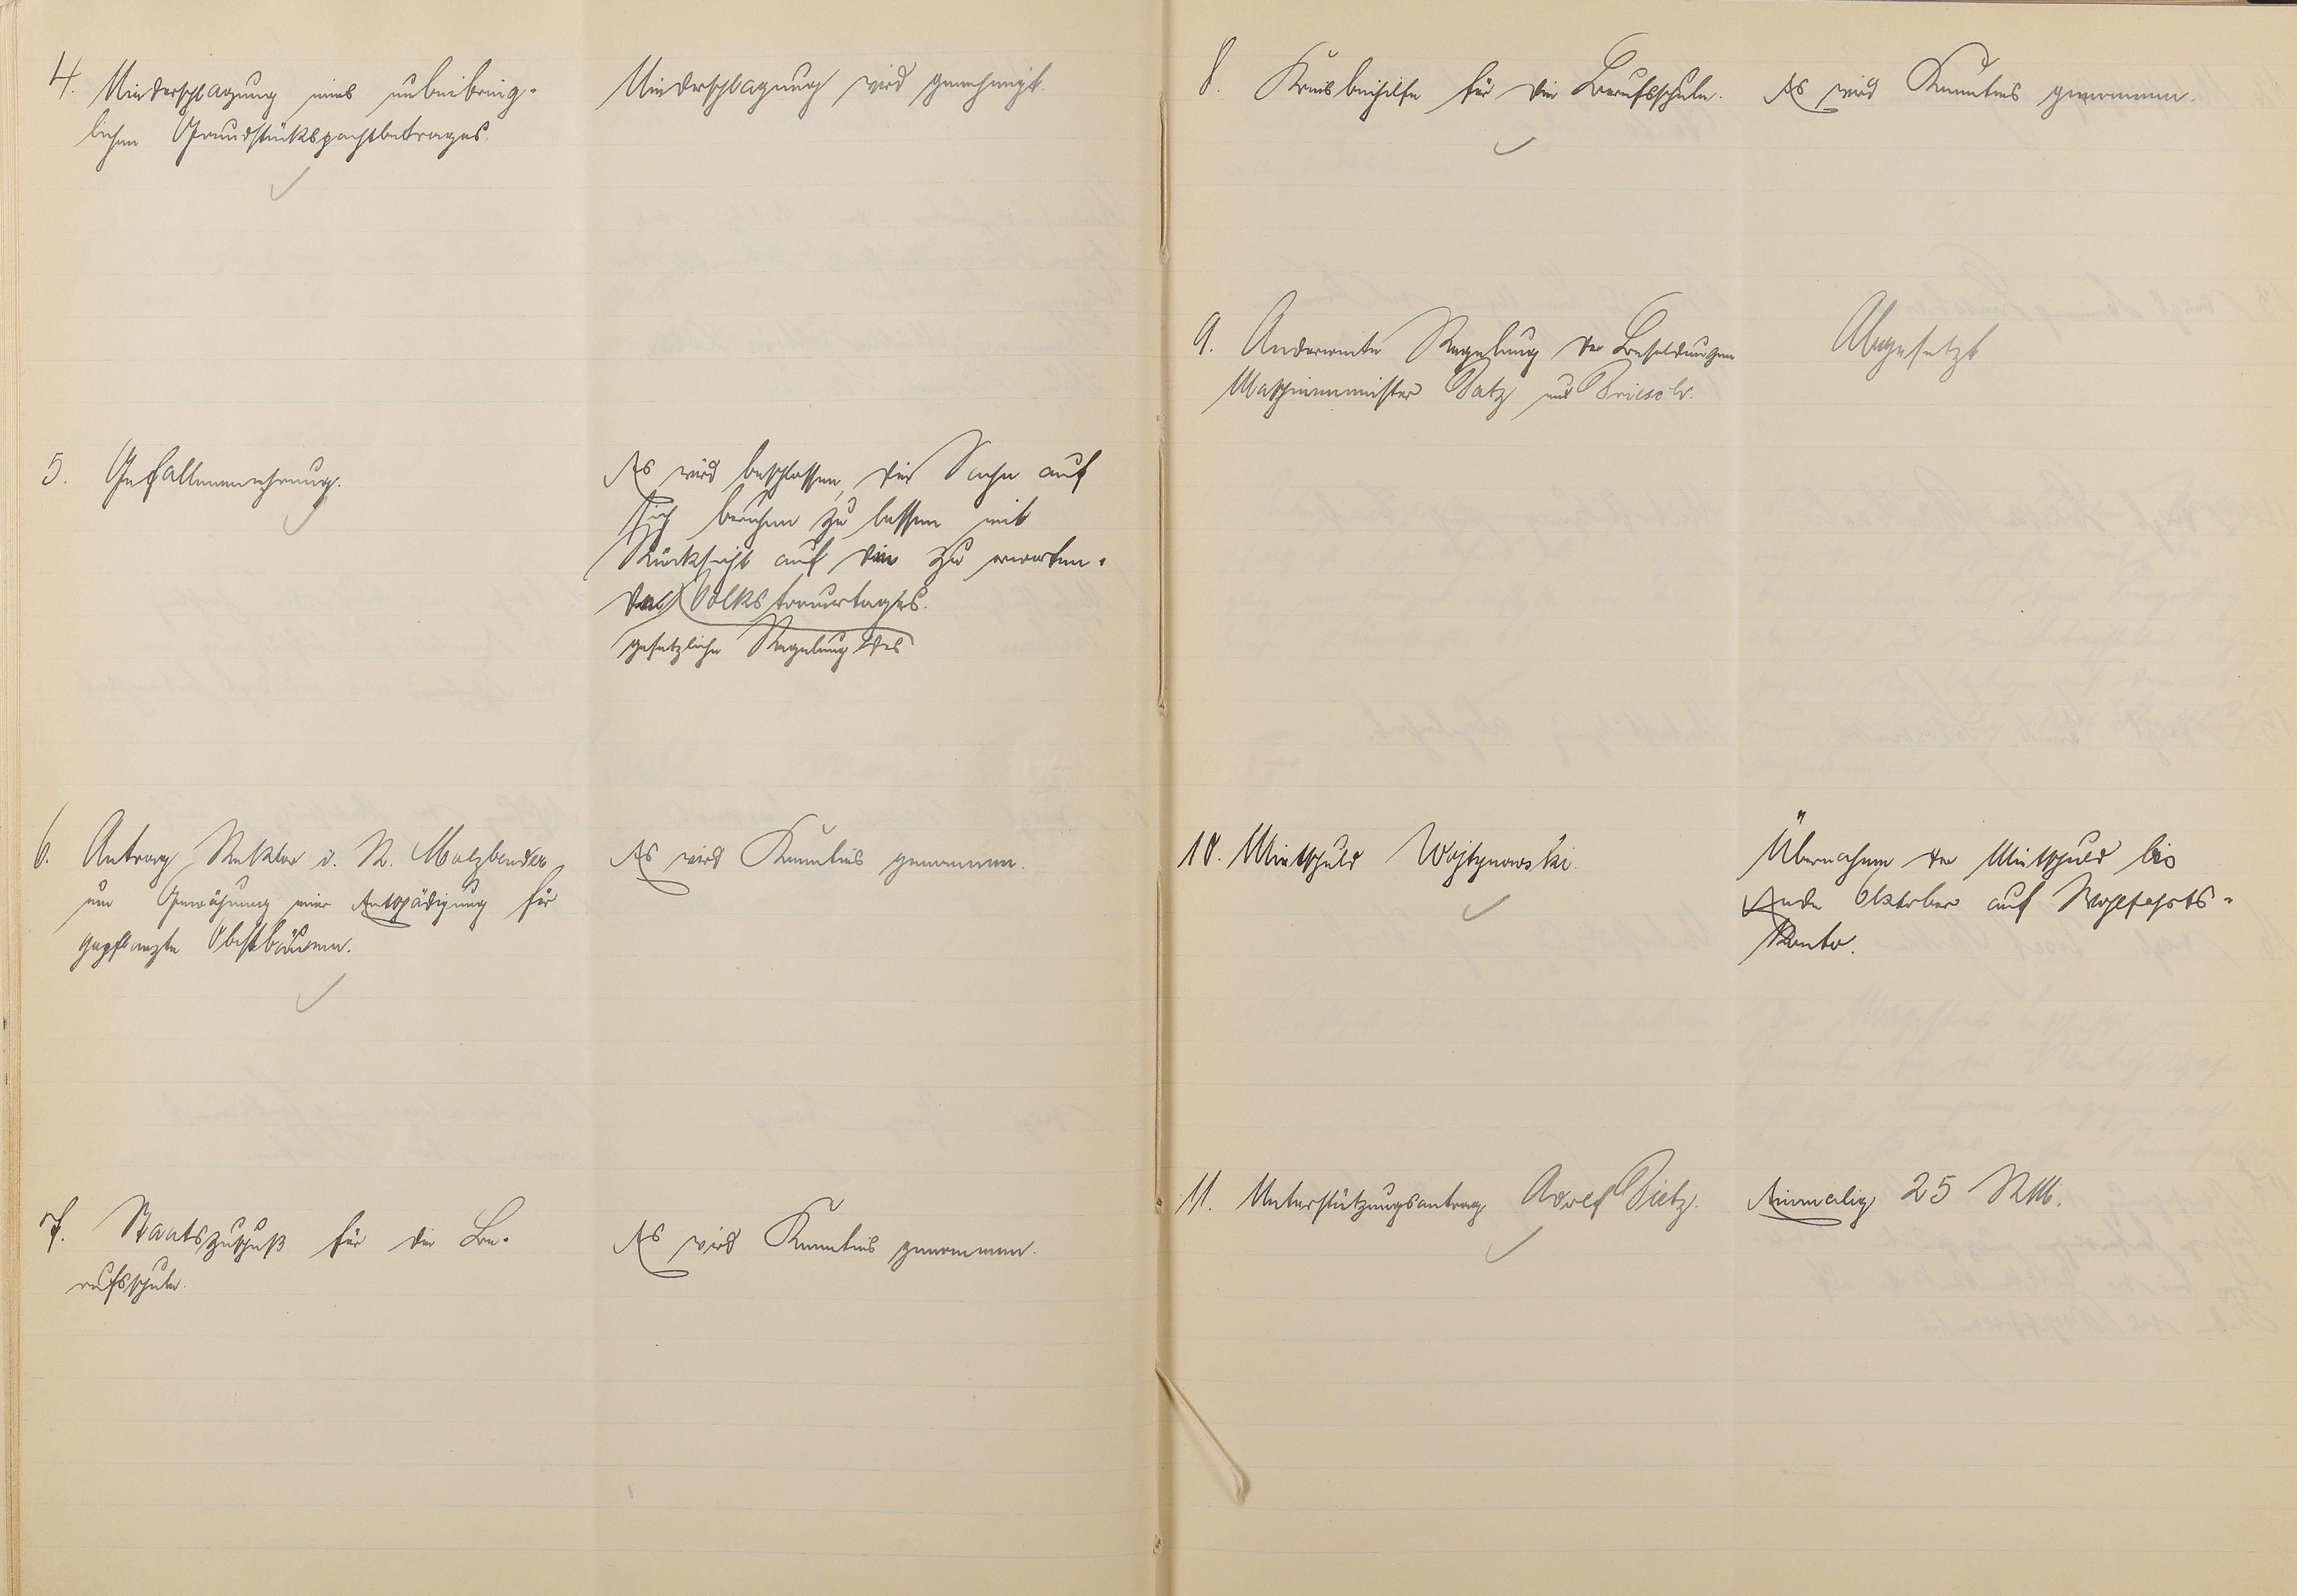 4. Niederschlagung eines unbeibring-
lichen Grundstückspachtbetrages.
Niederschlagung wird genehmigt.
5. Gefallenenehrung.
Es wird beschlossen, die Sache auf
sich beruhen zu lassen mit
Rücksicht auf die zu erwarten-
de Volkstrauertages.
gesetzliche Regelung des
6. Antrag Rektor i. R. Malzbender
um Gewährung einer Entschädigung für
gepflanzte Obstbäume.
Es wird Kenntnis genommen.
7. Staatszuschuß für die Be-
rufsschule.
Es wird Kenntnis genommen.
8. Kreisbeihilfe für die Berufsschule.
Es wird Kenntnis genommen.
9. Anderweite Regelung der Besoldungen
Maschinenmeister Patz und
Abgesetzt
10. Mietschuld Wojtynowski.
Übernahme der Mietschuld bis
Ende Oktober auf Wohlfahrts-
konto.
11. Unterstützungsantrag Adolf Pietz.
Einmalig 25 RM.